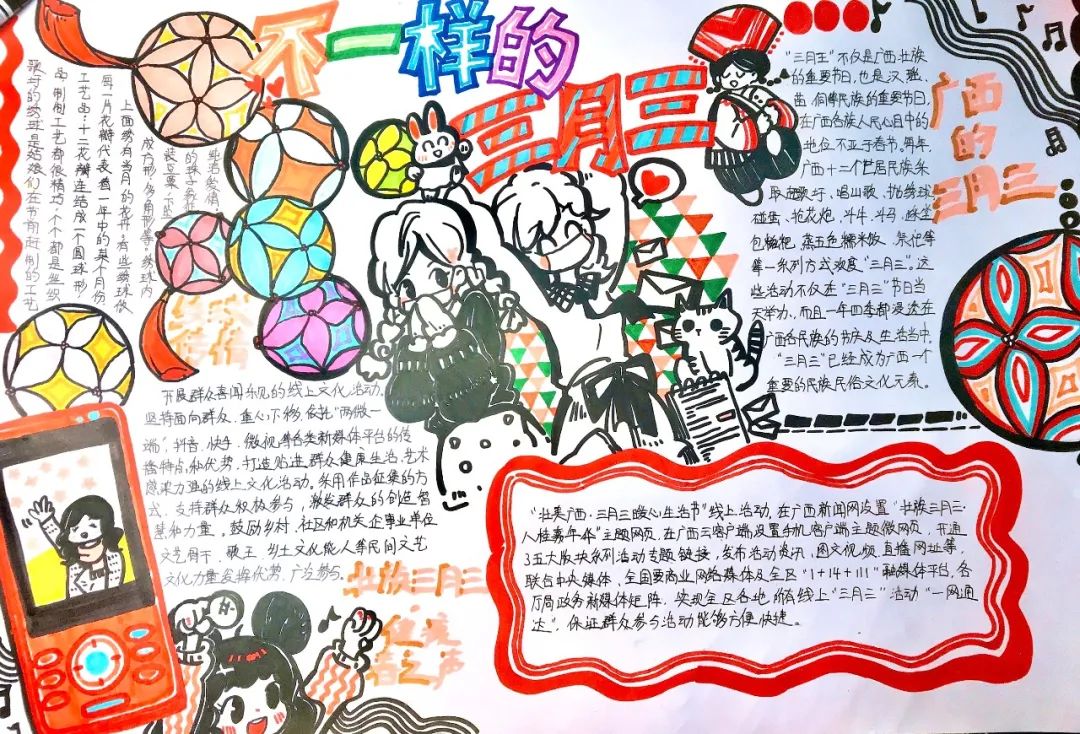 不一样的
三月三
"三月三"不仅是广西壮族
的重要节日,也是汉、瑶、
苗、侗等民族的重要节日,
在广西各族人民心目中的
地位不亚于春节、周年,
广西十二个世居民族采
取赶歌圩、唱山歌、抛绣球
碰蛋、抢花炮、斗牛、斗马、
包糍粑、蒸五色糯米饭、祭祀等
等一系列方式欢度"三月三"。这
些活动不仅在"三月三"节日当
天举办,而且一年四季都浸透在
广西各民族的节庆及生活当中,
"三月三"已经成为广西一个
重要的民族民俗文化元素。
广西
的
三月三
歌圩的绣球是姑娘们在节前赶制的工艺
品,制作工艺都很精巧,个个都是丝织
工艺品:十二花瓣连结成一个圆球形
每一片花瓣代表着一年中的某个月份
上面绣有当月的花卉,有些绣球做
成方形、多角形等,绣球内
装豆粟,下
开展群众喜闻乐见的线上文化活动,
坚持面向群众、重心下移,依托"两微一
端"、抖音、快手、微视等各类新媒体平台的传
播特点和优势,打造贴进群众健康生活、艺术
感染力强的线上文化活动。采用作品征集的方
式,支持群众积极参与,激发群众的创造智
慧和力量。鼓励乡村、社区和机关企事业单位
文艺骨干、歌王、乡土文化能人等民间文艺
文化力量发挥优势,广泛参与。
壮族三月三
"壮美广西·三月三暖心生活节"线上活动,在广西新闻网设置"壮族三月三·
八桂嘉年华"主题网页,在广西云客户端设置手机客户端主题微网页,开通
3五大版块系列活动专题链接,发布活动资讯、图文视频、直播网址等,
联合中央媒体、全国要商业网络媒体及全区"1+14+111"融媒体平台,各
厅局政务新媒体矩阵,实现全区各地所有线上"三月三"活动"一网通
达",保证群众参与活动能够方便快捷。